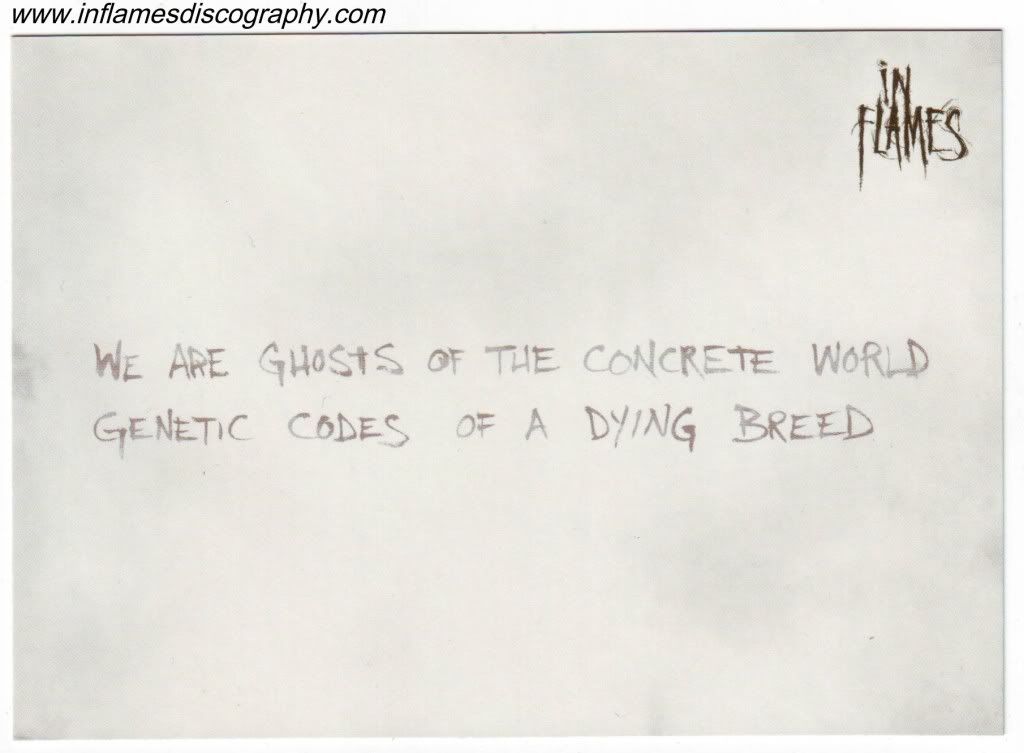 www.inflamesdiscography.com
IN
FLAMES
WE ARE GHOSTS OF THE CONCRETE WORLD
GENETIC CODES OF A DYING BREED